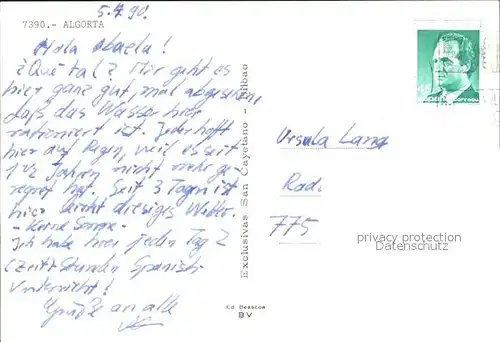 5.4.90.
7390.- ALGORTA
Hola Abuela!
¿Qué tal? Mir geht es
hier ganz gut, mal abgesehen,
daß das Wasser hier
rationiert ist. Jeder hofft
hier auf Regen, weil es seit
1 1/2 Jahren nicht mehr ge-
regnet hat. Seit 3 Tagen ist
hier leicht diesiges Wetter.
- Keine Sorge -
Ich habe hier jeden Tag 2
(Zeit)-Stunden Spanisch-
Unterricht!
Grüße an alle
Exclusivas San Cayetano - Bilbao
Ed. Beascoa
BV
Ursula Lang
Rad.
775
privacy protection
Datenschutz